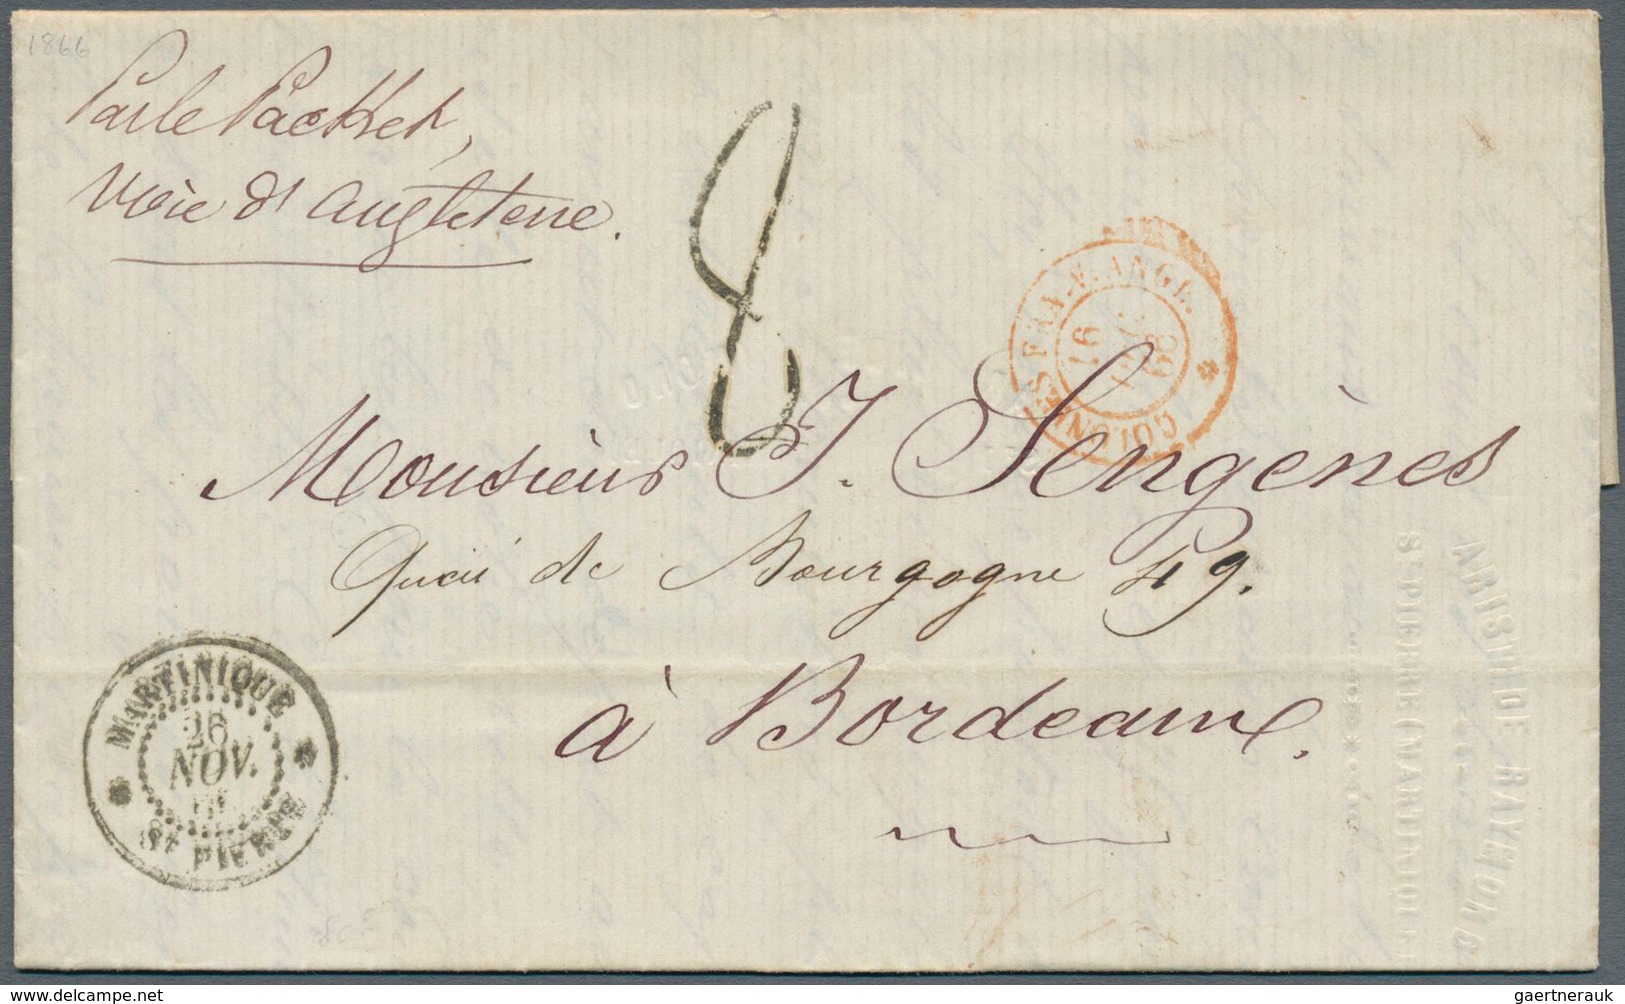 1866
Par le Packet,
voie d'Angleterre.
8
COLONIES FRA. V. ANGL.
16
66
Monsieur J. Sengènes
Quai de Bourgogne 49.
à Bordeaux.
MARTINIQUE
26
NOV.
ST PIERRE
ARISTIDE RAYMOND
ST PIERRE (MARTINIQUE)
gaertnerauk